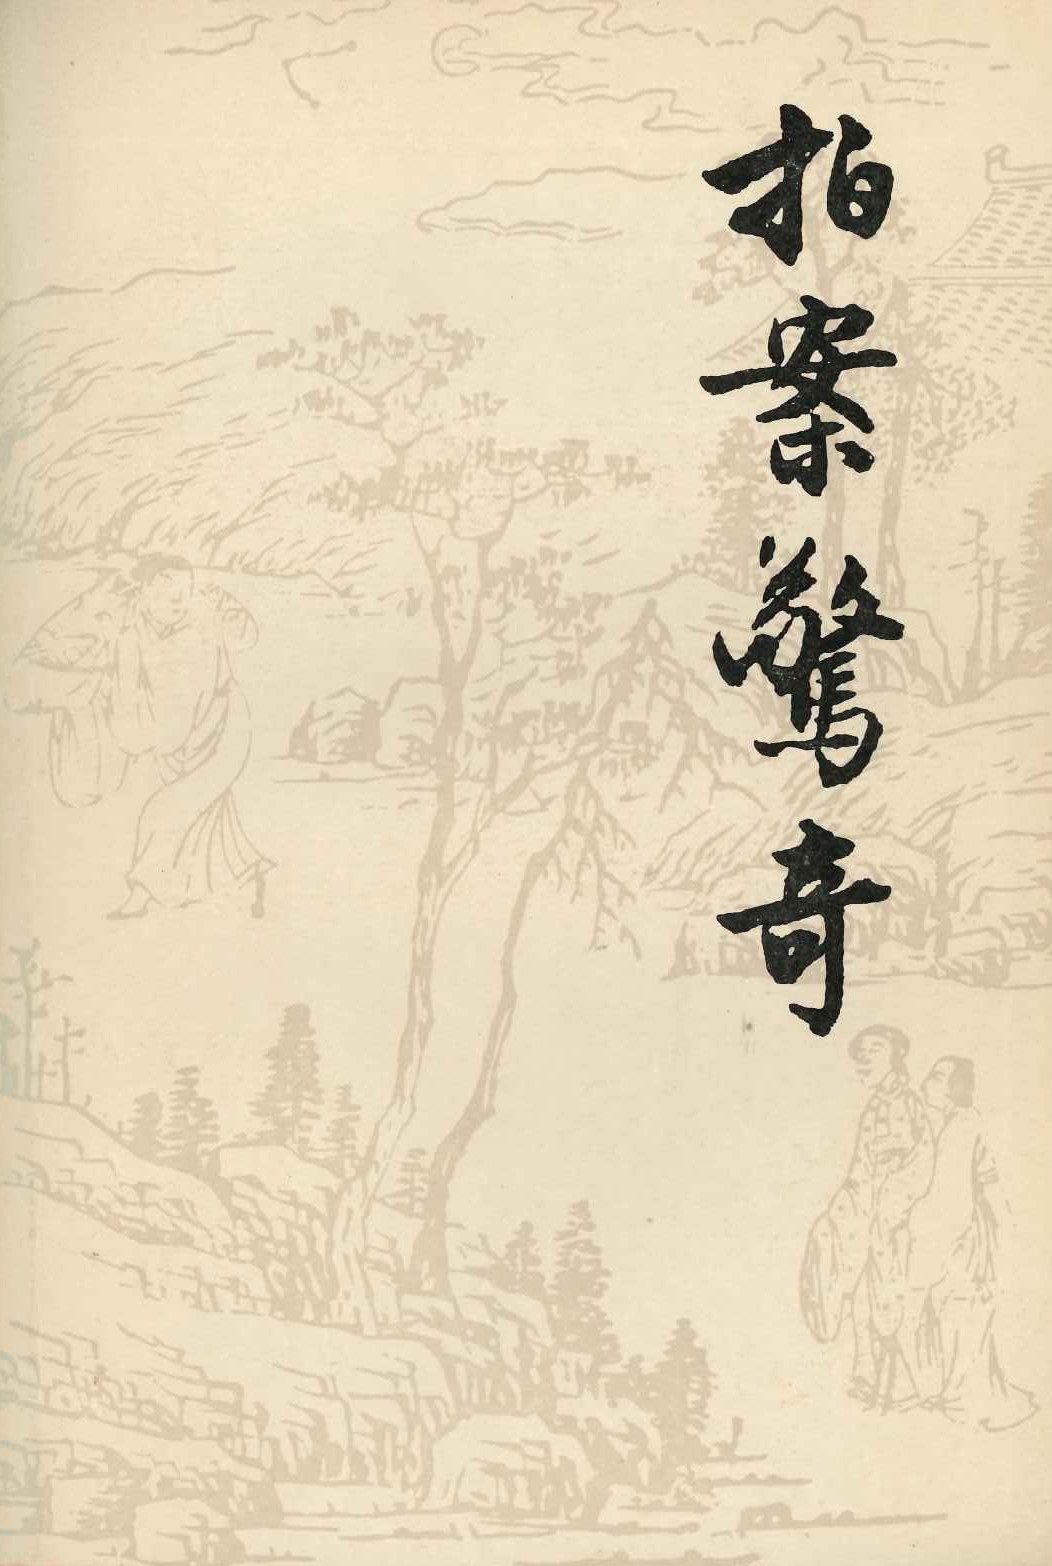 拍案驚奇